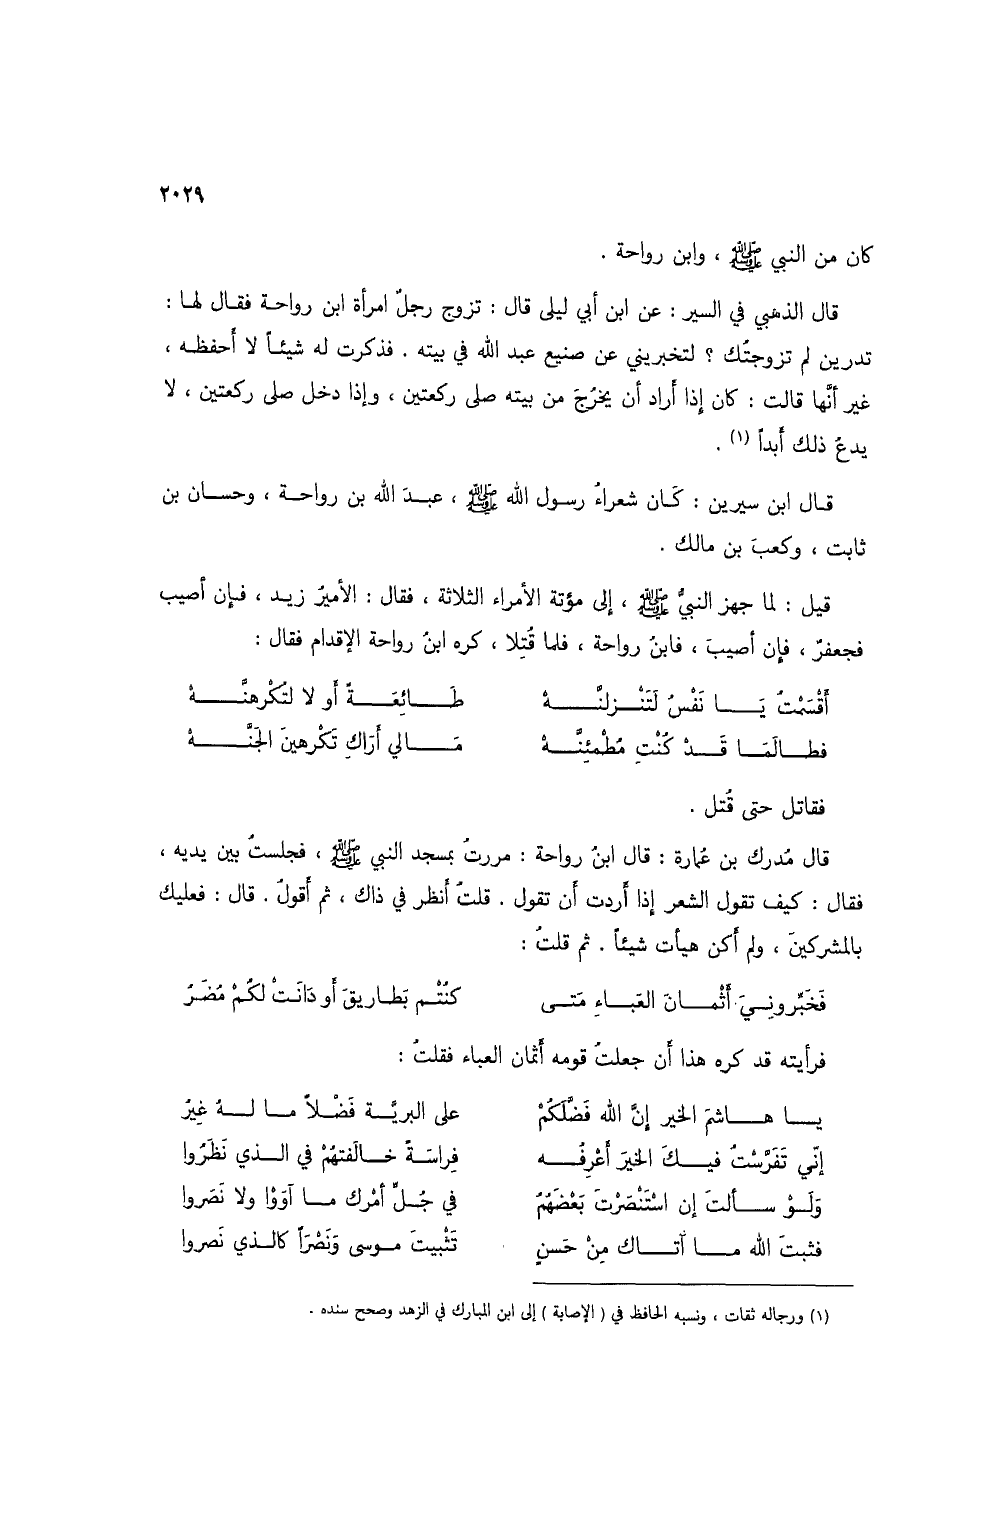 ٢٠٢٩
كان من النبي ﷺ ، وابن رواحة .
قال الذهبي في السير : عن ابن أبي ليلى قال : تزوج رجلٌ امرأة ابن رواحة فقال لها :
تدرين لم تزوجتُك ؟ لتخبريني عن صنيع عبد الله في بيته . فذكرت له شيئاً لا أحفظه ،
غير أنَّها قالت : كان إذا أراد أن يخرُجَ من بيته صلى ركعتين ، وإذا دخل صلى ركعتين ، لا
يدعُ ذلك أبداً (١) .
قال ابن سيرين : كَان شعراءُ رسول الله ﷺ ، عبدَ الله بن رواحة ، وحسان بن
ثابت ، وكعبَ بن مالك .
قيل : لما جهز النبيُّ ﷺ ، إلى مؤتة الأمراء الثلاثة ، فقال : الأميرُ زيد ، فإن أصيب
فجعفرٌ ، فإن أصيبَ ، فابنُ رواحة ، فلما قُتِلا ، كره ابنُ رواحة الإقدام فقال :
أقْسَمْتُ يَا نَفْسُ لَتَنْزِلنَّهْ طَائِعَةً أو لا لتُكْرهنَّهْ
فطالَمَا قَدْ كُنْتِ مُطْمئِنَّهْ مَالي أرَاكِ تَكْرهينَ الجَنَّهْ
فقاتل حتى قُتل .
قال مُدرك بن عُمارة : قال ابنُ رواحة : مررتُ بمسجد النبي ﷺ ، فجلستُ بين يديه ،
فقال : كيف تقول الشعر إذا أردت أن تقول . قلتُ أنظر في ذاك ، ثم أقولُ . قال : فعليك
بالمشركينَ ، ولم أكن هيأت شيئاً . ثم قلتُ :
فَخَبِّرونِيَ أثْمانَ العَباءِ مَتى كنُتْم بَطاريقَ أو دَانَتْ لكُمْ مُضَرُ
فرأيته قد كره هذا أن جعلتُ قومه أثمان العباء فقلتُ :
يا هاشمَ الخير إنَّ الله فَضَّلَكُمْ على البريَّة فَضْلاً ما لهُ غِيَرُ
إنّي تَفَرَّسْتُ فيكَ الخيرَ أعْرِفُه فِراسَةً خالَفتهُمْ في الذي نَظَرُوا
وَلَوْ سألتَ إن اسْتَنْصَرْتَ بَعْضَهُمُ في جُلِّ أمْرك ما آوَوْا ولا نَصَروا
فثبتَ الله ما أتاك مِنْ حَسنٍ تَثْبيتَ موسى وَنَصْرَاً كالذي نَصروا
(١) ورجاله ثقات ، ونسبه الحافظ في ( الإصابة ) إلى ابن المبارك في الزهد وصحح سنده .